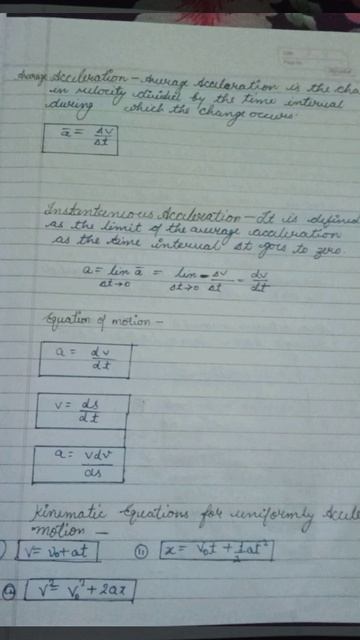 Average Acceleration - Average Acceleration is the cha
in velocity divided by the time interval
during which the change occurs.
ā = Δv/Δt
Instantaneous Acceleration - It is defined
as the limit of the average acceleration
as the time interval Δt goes to zero.
a = lim Δt→0 ā = lim Δt→0 Δv/Δt = dv/dt
Equation of motion -
a = dv/dt
v = ds/dt
a = vdv/ds
Kinematic Equations for uniformly Accele
motion -
) v = v₀ + at (ii) x = v₀t + 1/2 at²
v² = v₀² + 2ax